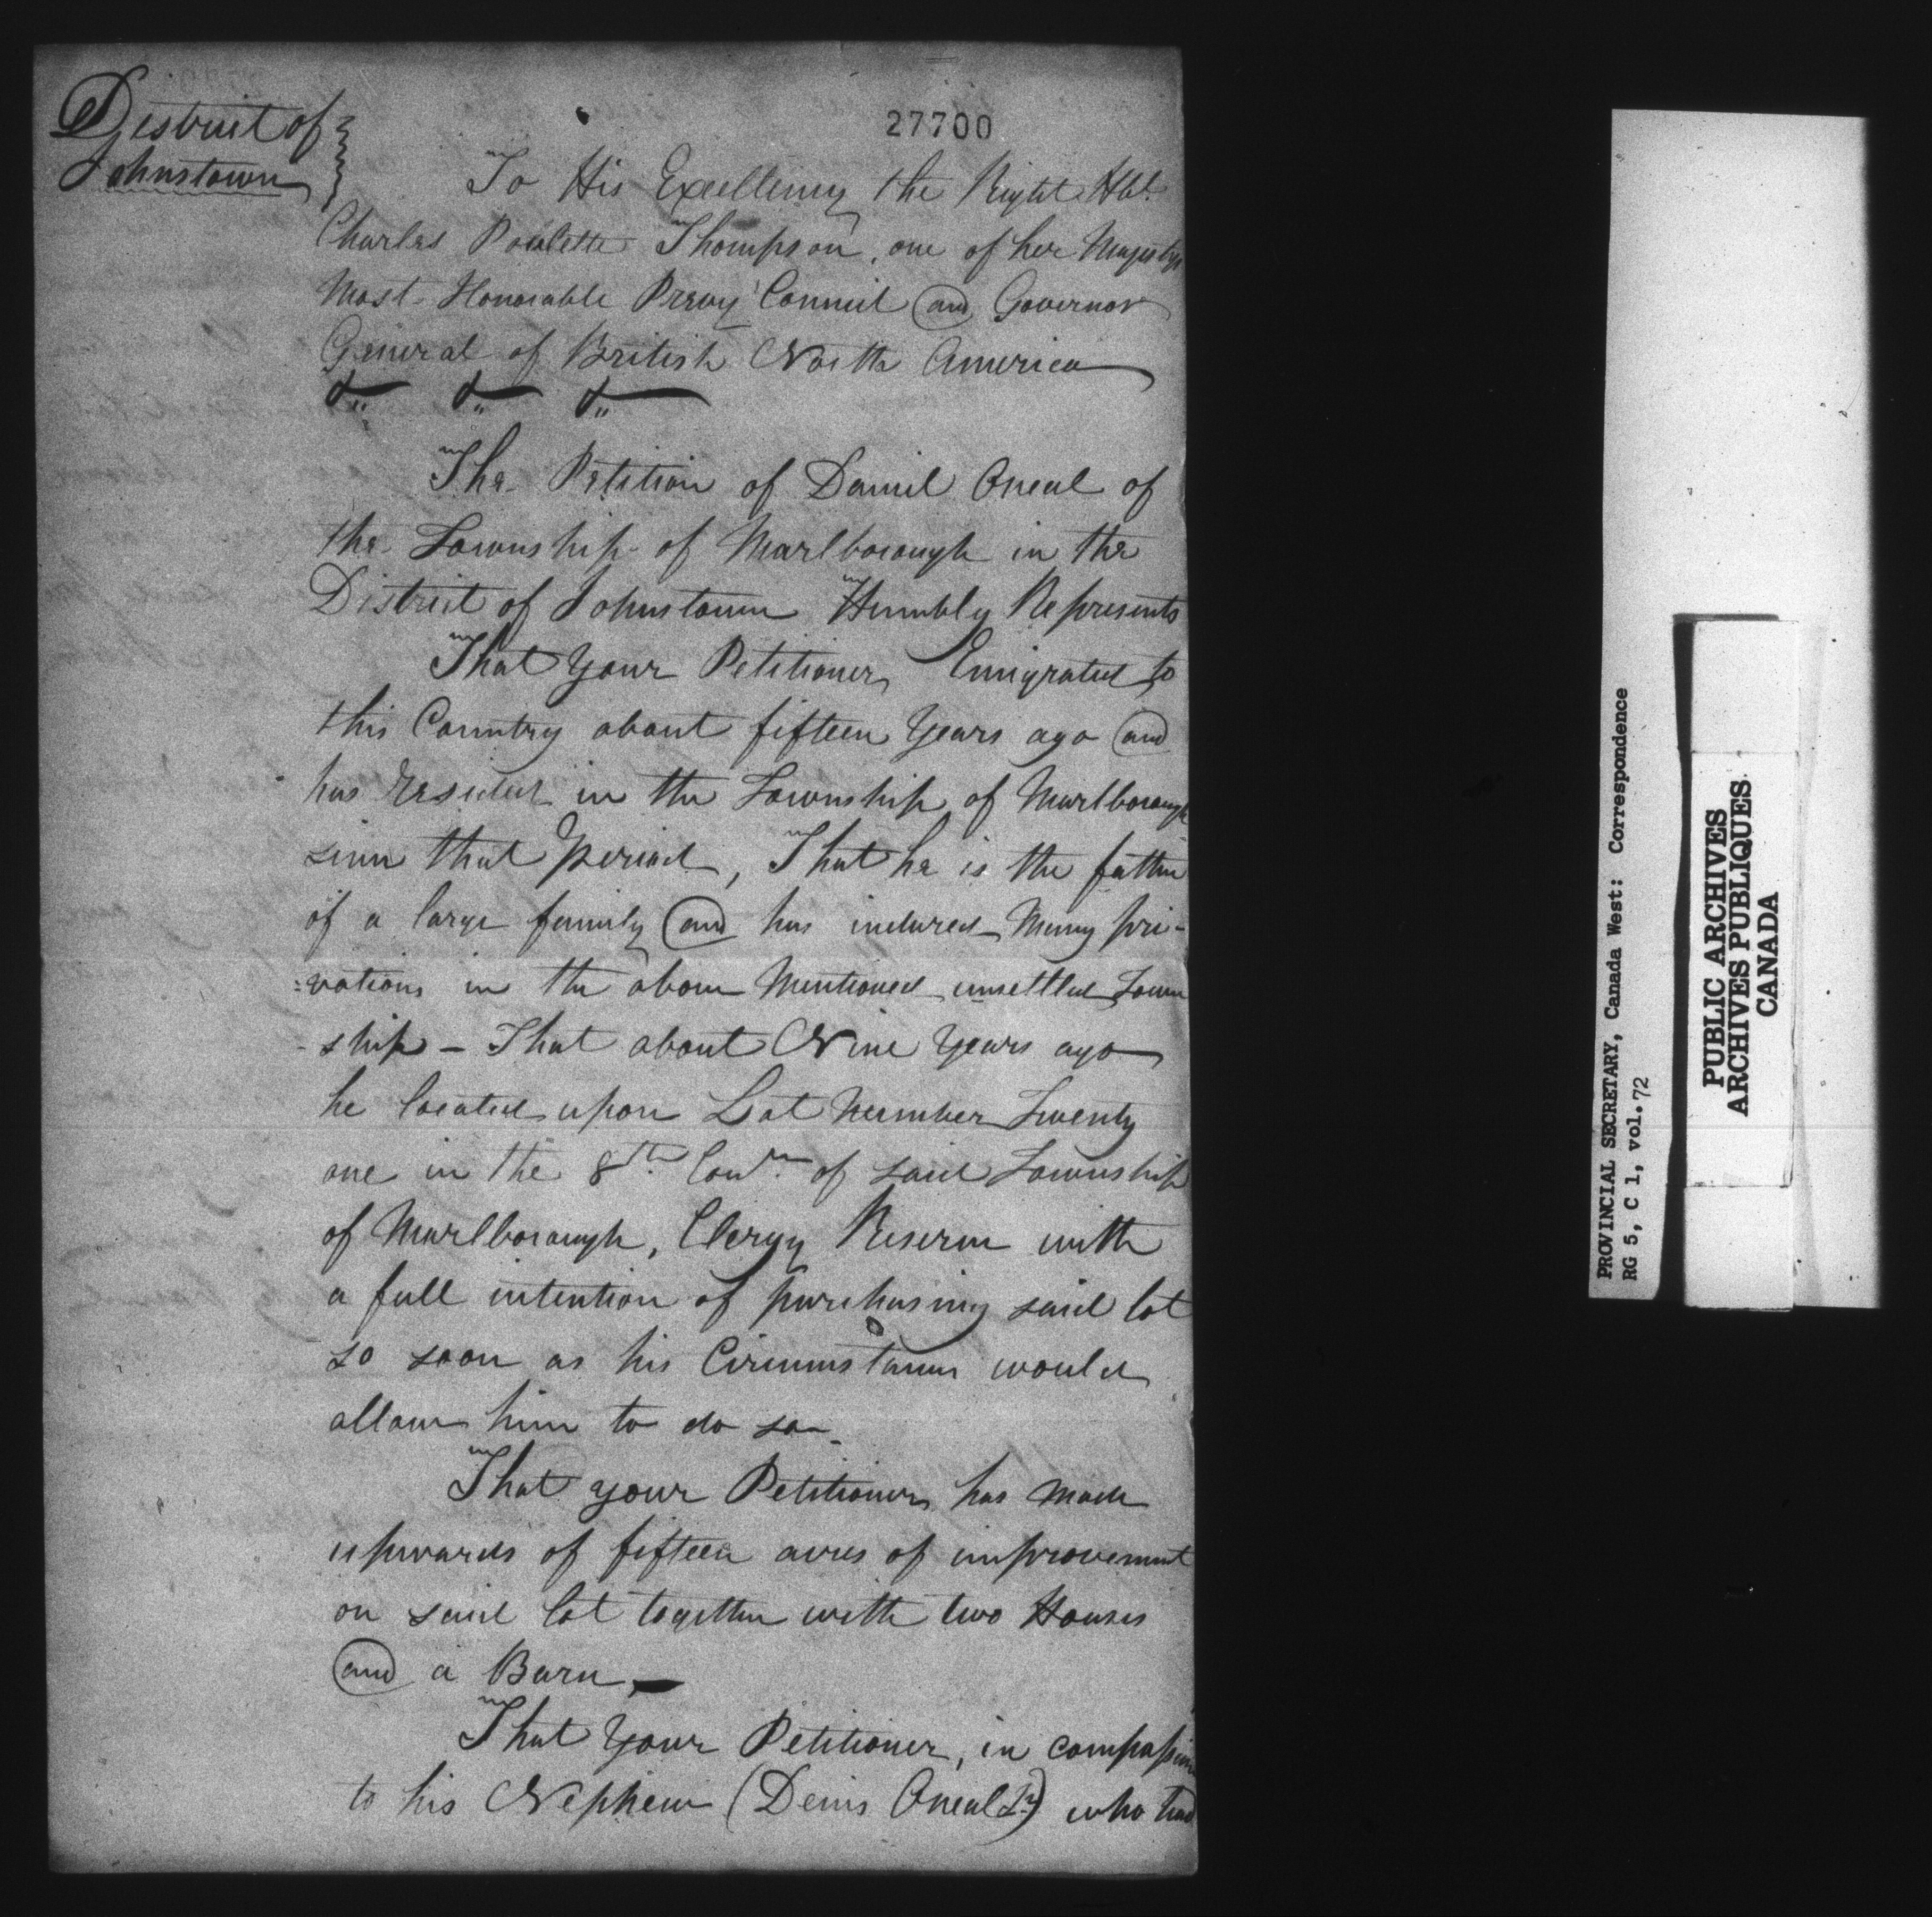 27700
District of
Johnstown
To His Excellency the Right Hbl.
Charles Poulette Thompson, one of her Majestys
Most Honorable Prevy Council and Governor
General of British North America
&,, &,, &,,
The Petition of Daniel Oneal of
the Township of Marlborough in the
District of Johnstown Humbly Represents
That Your Petitioner Emigrated to
this Country about fifteen Years ago and
has resided in the Township of Marlborough
since that period, That he is the father
of a large family and has indured Many pri-
=vations in the above Mentioned unsettled Town
-ship - That about Nine Years ago
he located upon Lot Number Twenty
one in the 8th Con.n of said Township
of Marlborough, Clergy Reserve with
a full intention of purchasing said lot
so soon as his Circumstances would
allow him to do so-
That your Petitioner has made
upwards of fifteen acres of improvement
on said lot together with two Houses
and a Barn,-
That Your Petitioner, in compassion
to his Nephew (Denis Oneal Jr) who had
PROVINCIAL SECRETARY, Canada West: Correspondence
RG 5, C 1, vol. 72
PUBLIC ARCHIVES
ARCHIVES PUBLIQUES
CANADA